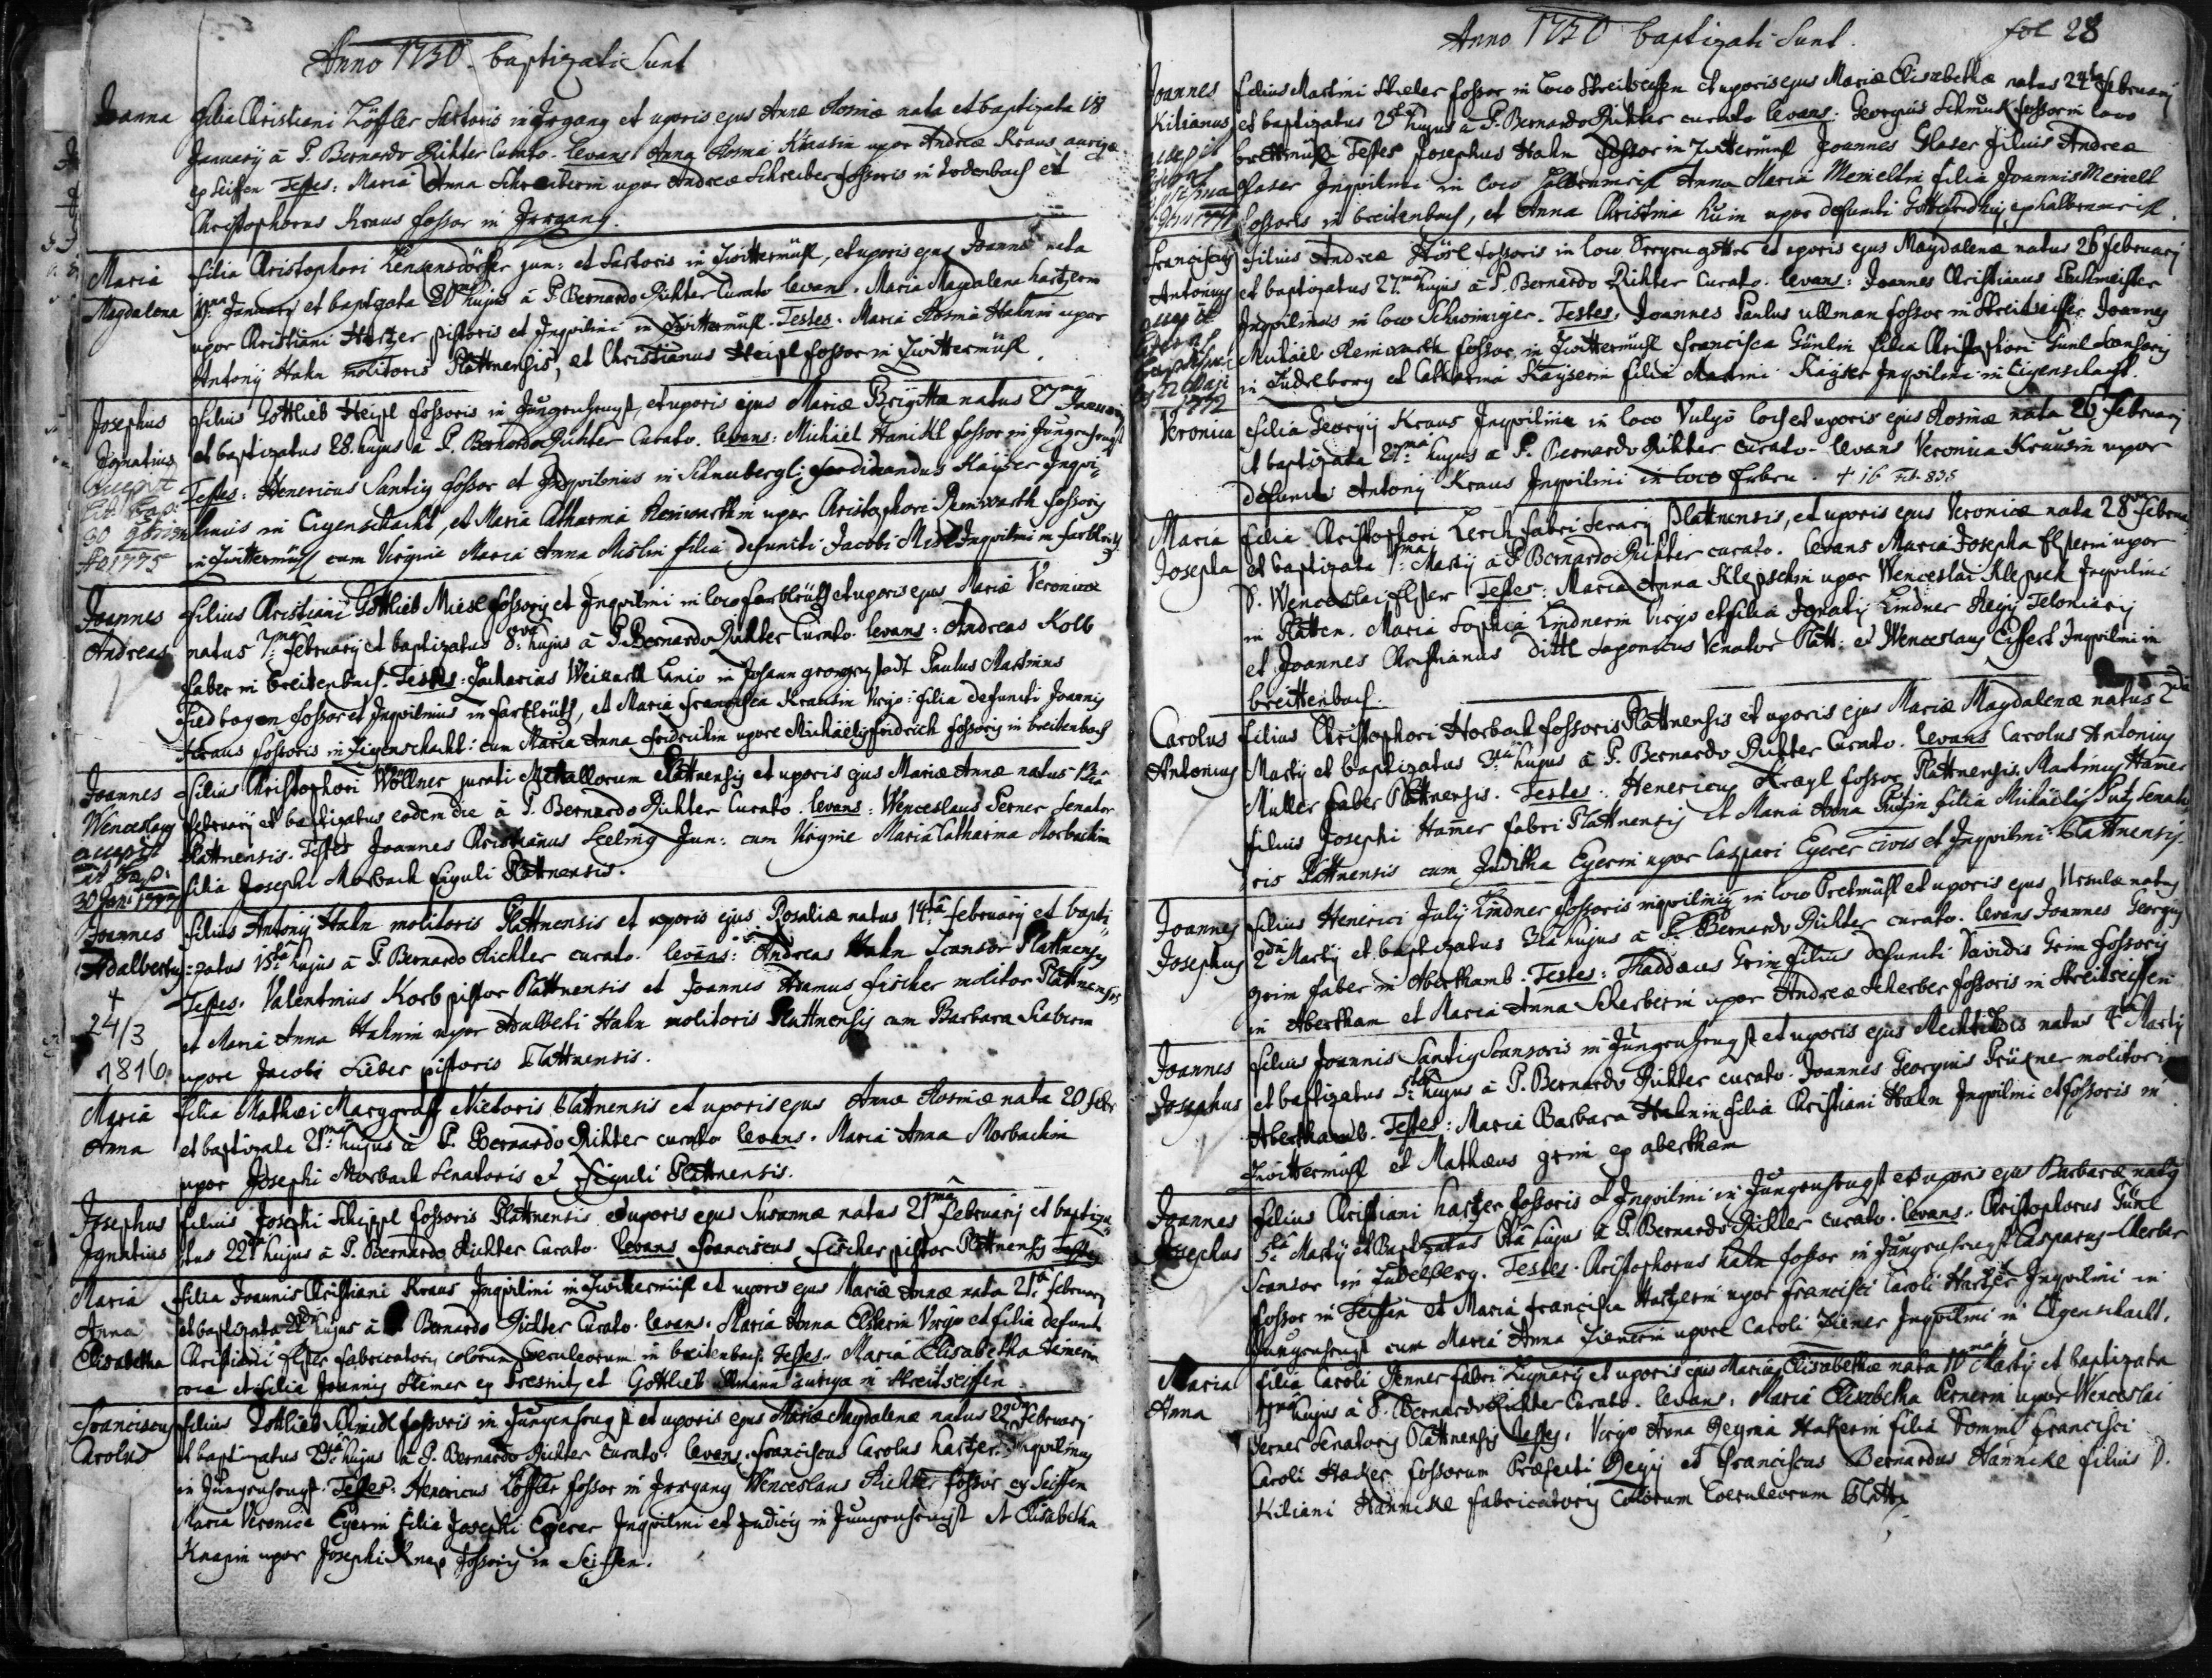 Anno 1750. baptizati Sunt
Joanna filia Christiani Löffler Sartoris in Irrgang et uxoris ejus Annæ Rosinæ nata et baptizata 18
Januarij à P. Bernardo Richter Curato. levans Anna Rosina Krausin uxor Andreæ Kraus aurigæ
ex Seiffen Testes: Maria Anna Schreiberin uxor Andreæ Schreiber fossoris in et
Christophorus Kraus fossor in Irrgang.
Maria filia Christophori jun: et Sartoris in Zwittermühl, et uxoris ejus Joannæ nata
Magdalena Januarij et baptizata hujus à P. Bernardo Richter Curato levans. Maria Magdalena hartzerin
uxor Christiani Hartzer pistoris et Inquilini in Zwittermühl. Testes. Maria Rosina Hahnin uxor
Antonij Hahn molitoris Plattnensis, et Christianus Heipl fossor in Zwittermühl.
Josephus filius Gottlieb Heipl fossoris in Jungenhengst, et uxoris ejus Mariæ Brigittæ natus 27ma Januarij
Ignatius et baptizatus 28. hujus à P. Bernardo Richter Curato. levans: Michaël Hanikl fossor in Jungenhengst
accepit Testes: Henericus Santig fossor et Inquilinus in Schnubergl; Ferdinandus Kayser Inqui-
lit: bap: linus in Eigenschacht, et Maria Catharina Reinwarthin uxor Christophori Reinwarth fossoris
30 9bris
Ao 1775 in Zwittermühl cum Virgine Maria Anna Mislin filia defuncti Jacobi Inquilini in farbleüth
Joannes filius Christiani Gottlieb Miesl fossoris et Inquilini in loco farbleüth et uxoris ejus Mariæ Veronicæ
Andreas natus 7ma Februarij et baptizatus 8va hujus à P. Bernardo Richter Curato. levans: Andreas Kolb
faber in breitenbach. Testes: Zacharias Weikarth Lanio in Johann georgenstadt Paulus Martinus
fossor et Inquilinus in farbleüth, et Maria Francisca Krausin Virgo: filia defuncti Joannis
Kraus fossoris in Eigenschacht: cum Maria Anna fridrichin uxore Michaëlis fridrich fossoris in breitenbach
Joannes filius Christophori Wöllner jurati Metallorum Plattnensis et uxoris ejus Mariæ Annæ natus 13tia
Wenceslaus februarij et baptizatus eodem die à P. Bernardo Richter Curato. levans: Wenceslaus Perner Senator
accepit Plattnensis. Testes Joannes Christianus Seeling Jun: cum Virgine Maria Catharina Morbachin
lit bap:
30 Jan: 1777 filia Josephi Morbach figuli Plattnensis.
Joannes filius Antonij Hahn molitoris Plattnensis et uxoris ejus Rosaliæ natus 14ta februarij et bapti
Adalbertus zatus 15ta hujus à P. Bernardo Richter curato. levans: Andreas Hahn Scansor Plattnensis
+ Testes. Valentinus Korb pistor Plattnensis et Joannes Adamus fischer molitor Plattnensis
24/3 et Maria Anna Hahnin uxor Adalberti Hahn molitoris Plattnensis cum Barbara Sieberin
1816. uxore Jacobi Sieber pistoris Plattnensis.
Maria filia Mathæi Marggraff Victoris Plattnensis et uxoris ejus Annæ Rosinæ nata 20 febr
Anna et baptizata 21ma hujus à P. Bernardo Richter curato levans. Maria Anna Morbachin
uxor Josephi Morbach Senatoris et figuli Plattnensis.
Josephus filius Josephi Schippl fossoris Plattnensis et uxoris ejus Susannæ natus 21ma februarij et baptiza
Ignatius tus 22da hujus à P. Bernardo Richter Curato. levans Franciscus fischer pistor Plattnensis
Maria filia Joannis Christiani Kraus Inquilini in Zwittermühl et uxoris ejus Mariæ Annæ nata 21ma februarij
Anna et baptizata 22da hujus à P. Bernardo Richter Curato. levans. Maria Anna Elsterin Virgo et filia defuncti
Elisabetha Christiani Elster fabricatoris colorum cœruleorum in breitenbach. Testes. Maria Elisabetha Steinerin
et filia Joannis Steiner ex et Gottlieb Ulmann auriga in Streitseiffen
Franciscus filius Gottlieb Schmidl fossoris in Jungenhengst et uxoris ejus Mariæ Magdalenæ natus 22da Februarij
Carolus et baptizatus 23tia hujus à P. Bernardo Richter Curato. levans. Franciscus Carolus hartzer Inquilinus
in Jungenhengst. Testes: Henericus Löffler fossor in Irrgang Wenceslaus Richter fossor ex Seiffen
Maria Veronica Eyerin filia Josephi Eyerer Inquilini et Judicis in Jungenhengst et Elisabetha
Knapin uxor Josephi Knap fossoris in Seiffen.
Anno 1750 baptizati Sunt. fol 28
Joannes filius Martini fossor in loco Streitseiffen et uxoris ejus Mariæ Elisabethæ natus 24ta februarij
Kilianus et baptizatus 25ta hujus à P. Bernardo Richter curato levans: Georgius Schmuk fossor in loco
accepit brettmühl Testes Josephus Hahn fossor in Zwittermühl Joannes Glaser filius Andreæ
Glaser Inquilini in loco Anna Maria Meineltin filia Joannis Meinelt
fossoris in breitenbach, et Anna Christina uxor defuncti
Franciscus filius Andreæ fossoris in loco et uxoris ejus Magdalenæ natus 26 februarij
Antonius et baptizatus 27ma hujus à P. Bernardo Richter Curato. levans: Joannes Christianus
accepit Inquilinus in loco Schwimiger. Testes: Joannes Paulus ullman fossor in Streitseiffen Joannes
Michaël Reinwarth fossor in Zwittermühl Francisca Günlin filia Christophori Günl Scansoris
22 Maji
1772 in Zudelberg et Catharina Kayserin filia Martini Kayser Inquilini in Eigenschacht.
Veronica filia Georgij Kraus Inquilini in loco Vulgò loch et uxoris ejus Rosinæ nata 26 februarij
et baptizata 27ma hujus a P. Bernardo Richter curato. levans Veronica Krausin uxor
defuncti Antonij Kraus Inquilini in loco + 16 835
Maria filia Christophori Lerch fabri ferarij Plattnensis, et uxoris ejus Veronicæ nata 28va februar
Josepha et baptizata 1ma Martij à P. Bernardo Richter curato. levans Maria Josepha Elsterin uxor
D. Wenceslai Elster Testes: Maria Anna Klepschin uxor Wenceslai Klepsch Inquilini
in Platten. Maria Sophia Lindnerin Virgo et filia Ignatij Lindner Regij Teloniarij
et Joannes Christianus Dittl Saponicus Venator Platt: et Wenceslaus Eissert Inquilini in
breittenbach.
Carolus filius Christophori Horbach fossoris Plattnensis et uxoris ejus Mariæ Magdalenæ natus 2da
Antonius Martij et baptizatus 3tia hujus à P. Bernardo Richter Curato. levans Carolus Antonius
Müller faber Plattnensis. Testes. Henericus Kragl fossor Plattnensis. Martinus Hamer
filius Josephi Hamer fabri Plattnensis et Maria Anna Putzin filia Michaëlis Putz Senato
ris Plattnensis cum Juditha Eyerin uxor Caspari Eyerer civis et Inquilini Plattnensis.
Joannes filius Henerici Julij Lindner fossoris inquilinus in loco Pretmühl et uxoris ejus Ursulæ natus
Josephus 2da Martij et baptizatus 3tia hujus à P. Bernardo Richter curato. levans Joannes Georgius
grim faber in Aberthamb. Testes: Thaddæus Grim filius defuncti Davidis Grim fossoris
in Abertham et Maria Anna Scherberin uxor Andreæ Scherber fossoris in Streitseiffen
Joannes filius Joannis Santig Scansoris in Jungenhengst et uxoris ejus Mechtildis natus 4ta Martij
Josephus et baptizatus 5ta hujus à P. Bernardo Richter curato. Joannes Georgius Prükner molitoris
Aberthamb. Testes: Maria Barbara Hahnin filia Christiani Hahn Inquilini et fossoris in
Zwittermühl et Mathæus grim ex abertham
Joannes filius Christiani hartzer fossoris et Inquilini in Jungenhengst et uxoris ejus Barbaræ natus
Josephus 5ta Martij et Baptizatus 6ta hujus à P. Bernardo Richter curato. levans. Christophorus Günl
Scansor in Zudelberg. Testes. Christophorus hahn fossor in Jungenhengst Casparus
fossor in Seiffen et Maria francisca Hartzerin uxor francisci Caroli Hartzer Inquilini in
Jungenhengst cum Maria Anna Zienerin uxore Caroli Ziener Inquilini in Eigenschacht.
Maria filia Caroli Penner fabri Lignarij et uxoris ejus Mariæ Elisabethæ nata 10ma Martij et baptizata
Anna 11ma hujus à P. Bernardo Richter Curato. levans. Maria Elisabetha Pernerin uxor Wenceslai
Perner Senatoris Plattnensis Testes. Virgo Anna Regina Hakerin filia Domini Francisci
Caroli Hacker fossorum Præfecti Regij et Franciscus Bernardus Hannicke filius D.
Kiliani Hannicke fabricatoris Colorum Cœruleorum Platt: